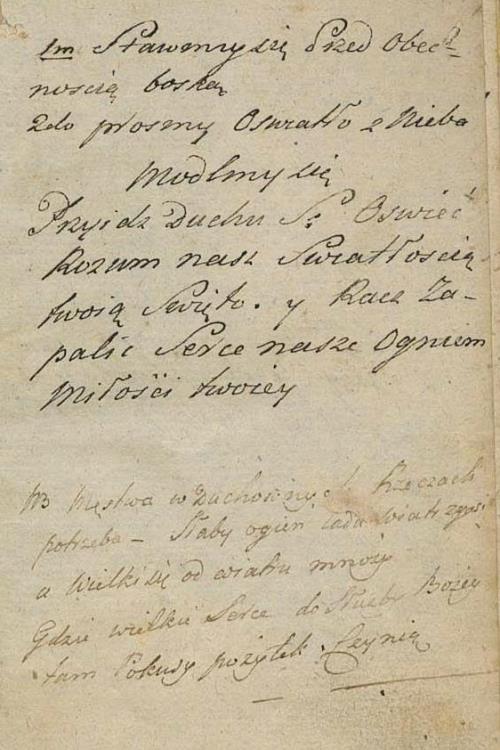 1m Stawmy się Przed Obec=
nością boską
2do prośmy Oswiatło z Nieba
Modlmy się
Przyidz Duchu S: Oswieć
Rozum nasz Swiatłością
twoią Swięto. y Racz Za-
palic Serce nasze Ogniem
Miłości twoiey
NB Męstwa w Duchownych Rzeczach
potrzeba – Słaby ogień lada wiatr zgasi
a Wielki się od wiatru mnoży
Gdzie wielkie Serce do Służby Bożey
tam Pokusy pożytek Czynią